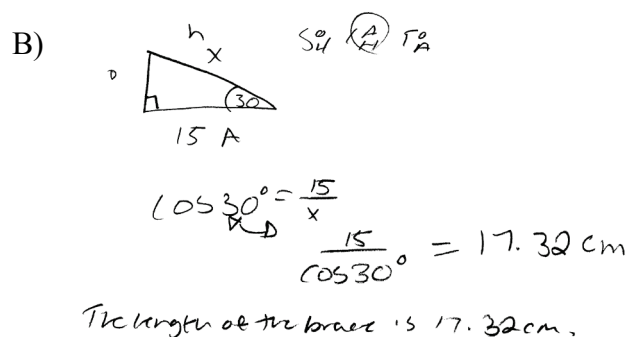 B)
h
x
S O/H C A/H T O/A
O
30
15 A
cos 30° = 15/x
15/cos30° = 17.32 cm
The length of the brace is 17.32cm.